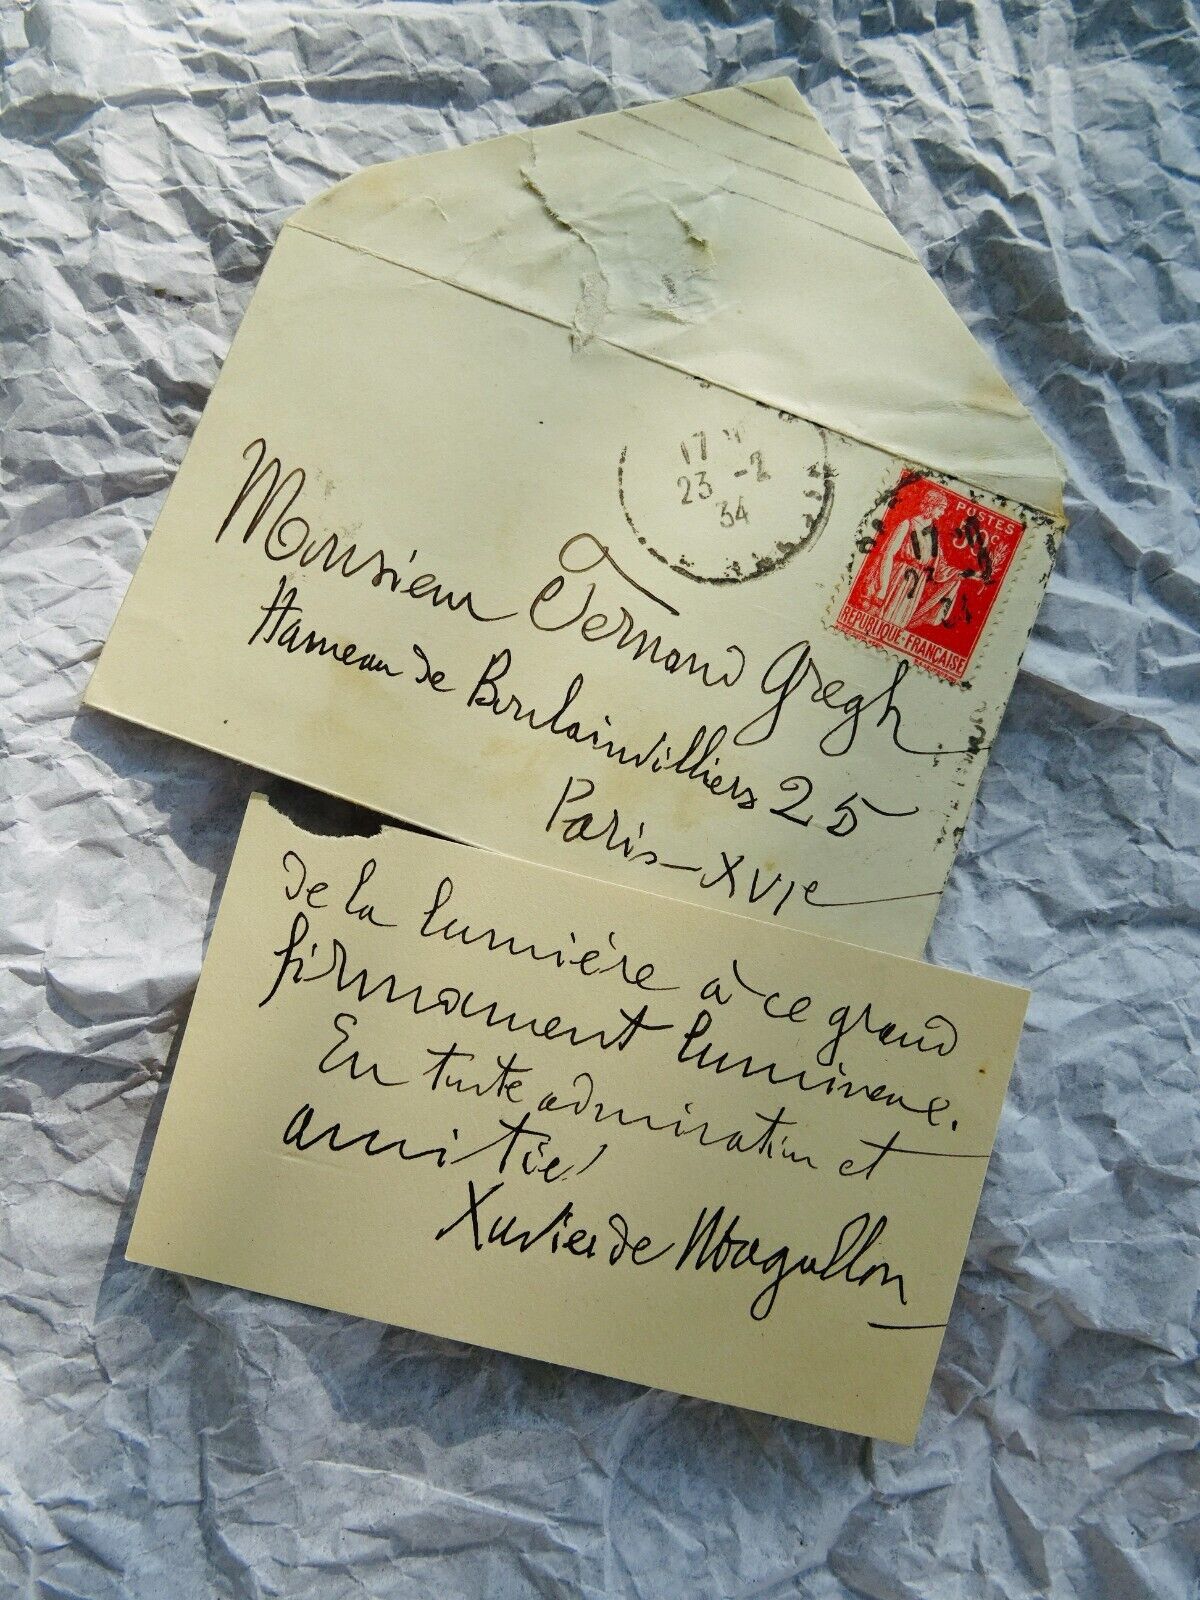 17
23 -2
34
POSTES
50c
17
RÉPUBLIQUE-FRANÇAISE
Monsieur Fernand Gregh
Hameau de Boulainvilliers 25
Paris-XVIe
de la lumière à ce grand
firmament lumineux.
En toute admiration et
amitié!
Xavier de Magallon